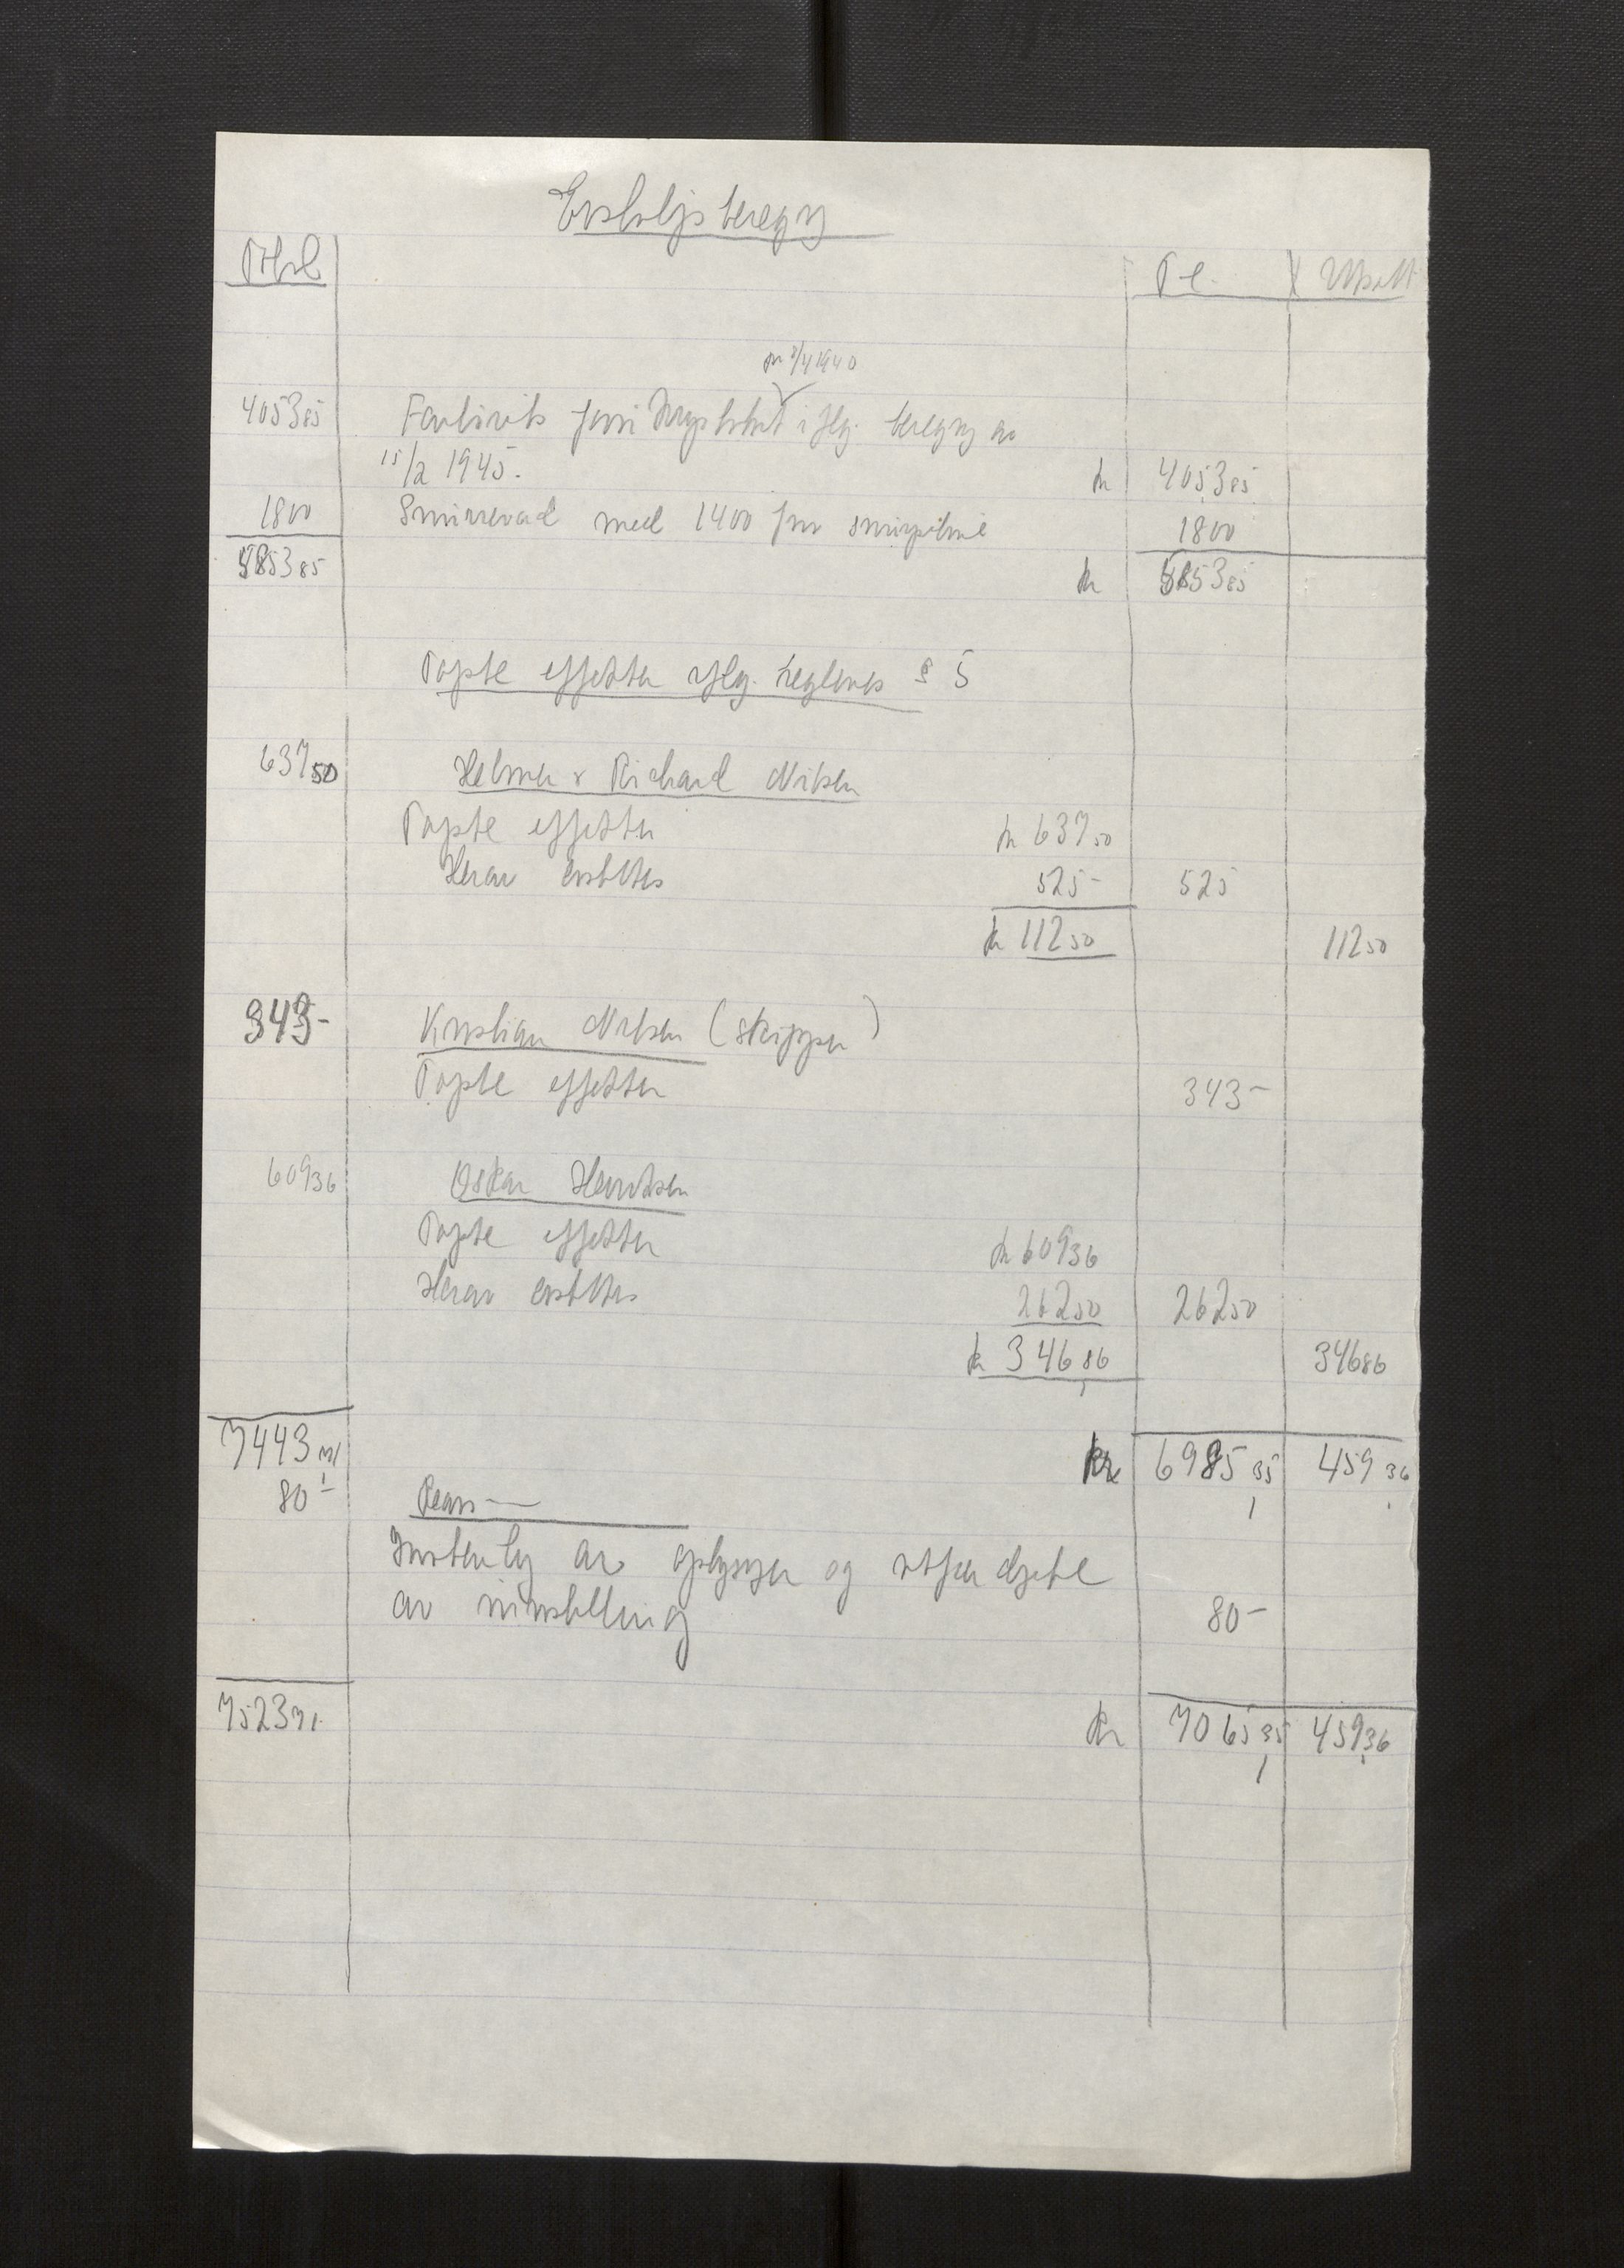 Erstatningsberegng
Total T.e. Utbatt
pr 9/4 1940
4053 85 Fartøiets ifølg. beregng av
15/2 1945. kr 4053 85
1800 Snurrevad med 1400 fvn snurpeline 1800
5853 85 kr 5853 85
Tapte effekter iflg. reglenes § 5
637 50 Helmer & Richard Nilsen
Tapte effekter kr 637 50
Herav erstattes 525- 525
kr 112 50 112 50
343- Kristian Nilsen (skipper)
Tapte effekter 343-
609 36 Oskar Henriksen
Tapte effekter kr 609 36
Herav erstattes 262 50 262 50
kr 346 86 346 86
7443 71 kr 6985 35 459 36
80-
av oplysnger og utferdigelse
av innstilling 80-
7523 71 kr 7065 35 459 36